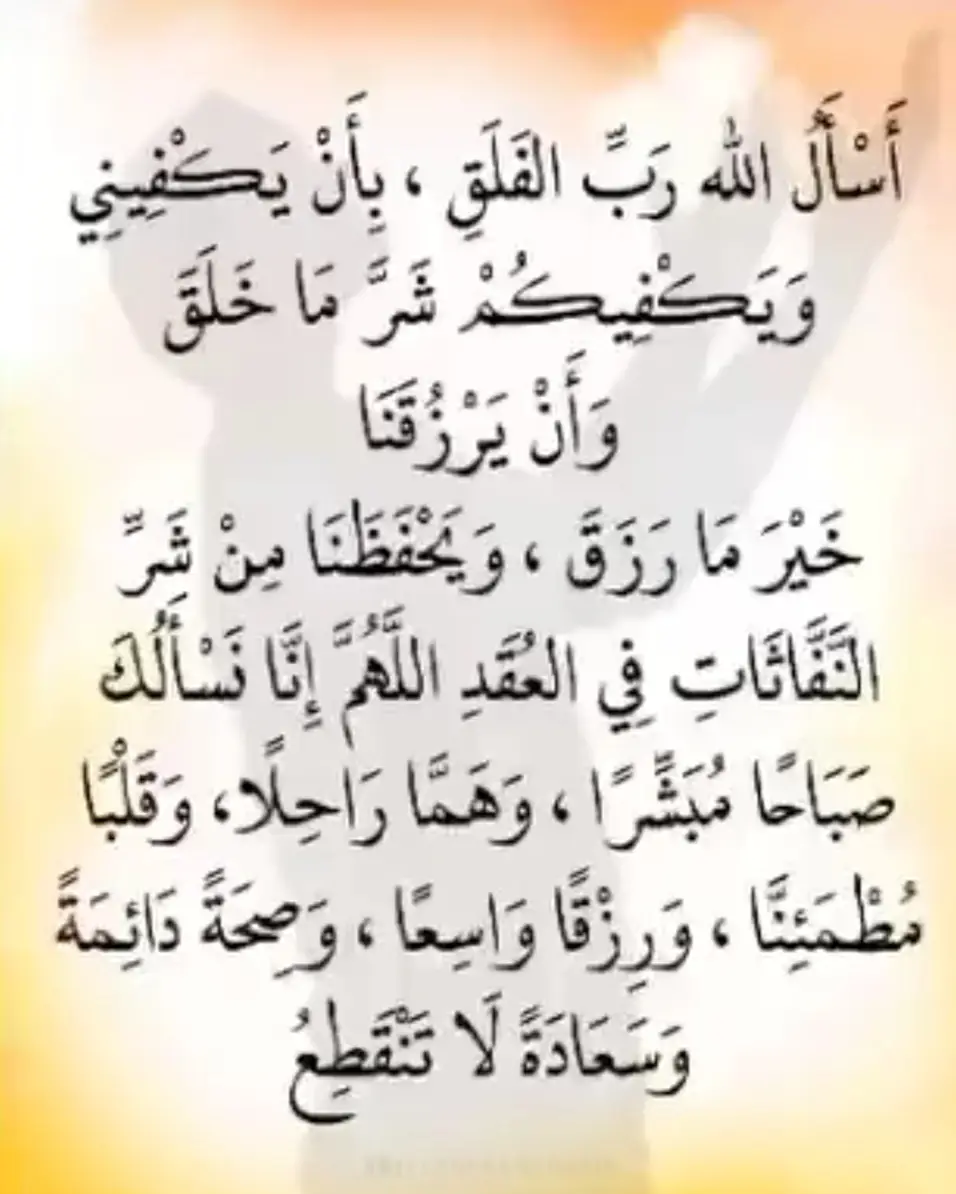 أَسْأَلُ الله رَبِّ الفَلَقِ ، بِأَنْ يَكْفِينِي
وَيَكْفِيكُمْ شَرَّ مَا خَلَقَ
وَأَنْ يَرْزُقَنَا
خَيْرَ مَا رَزَقَ ، وَيَحْفَظَنَا مِنْ شَرِّ
النَّفَّاثَاتِ فِي العُقَدِ اللَّهُمَّ إِنَّا نَسْأَلُكَ
صَبَاحًا مُبَشِّرًا ، وَهَمًّا رَاحِلًا، وَقَلْبًا
مُطْمَئِنًّا ، وَرِزْقًا وَاسِعًا ، وَصِحَةً دَائِمَةً
وَسَعَادَةً لَا تَنْقَطِعُ